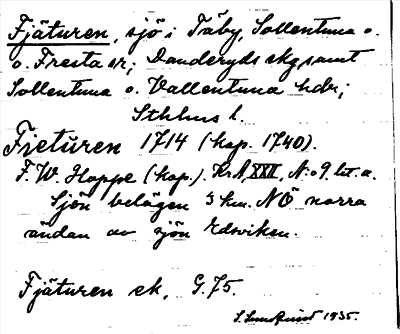 Fjäturen, sjö i Täby, Sollentuna o.
o. Fresta sr; Danderyds skg samt
Sollentuna o. Vallentuna hdr;
Sthlms l.
Fieturen 1714 (kop. 1740).
F. W. Hoppe (kop.). Kr.A, XXII, N:o 9 lit. a.
Sjön belägen 3 km. NÖ norra
ändan av sjön Edsviken.
Fjäturen ek, G.75.
S. Lundquist 1935.